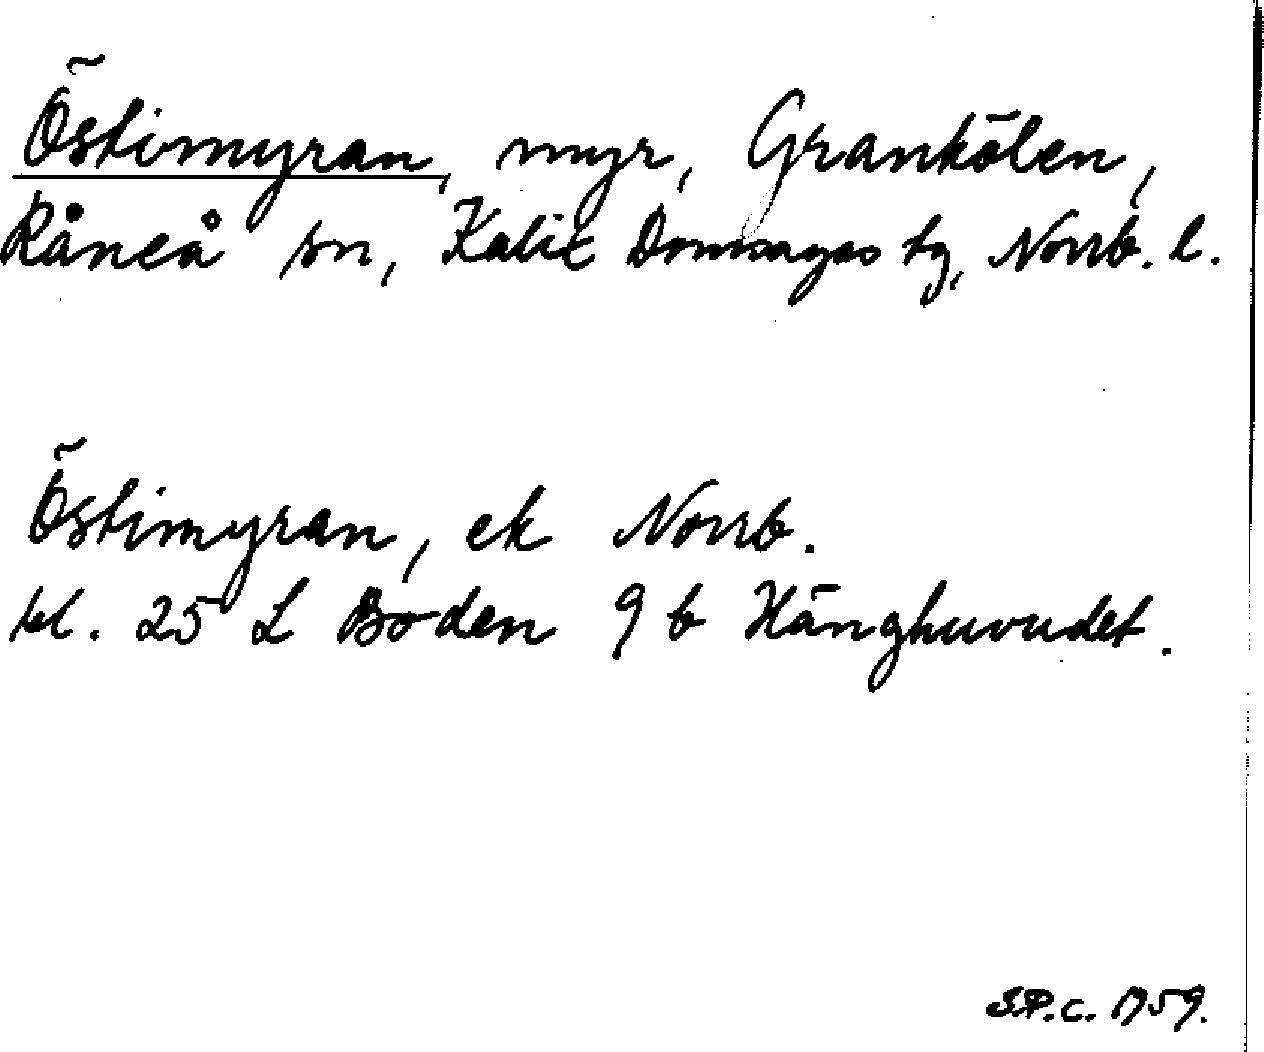 Östimyran, myr, Grankölen,
Råneå sn, Kalix Domsagas tg, Norrb. l.
Östimyran, ek Norrb.
kl. 25 L Boden 9 b Hänghuvudet.
S.P.c. 1959.